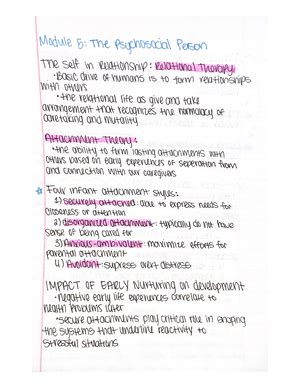 Module 5: The Psychosocial Person
The self in Relationship: Relational Therapy:
• Basic drive of humans is to form relationships
with others
• the relational life as give and take
arrangement that recognizes the normalcy of
caretaking and mutality
Attachment Theory:
• the ability to form lasting attachments with
others based on early experiences of seperation from
and connection with our caregivers
☆ Four infant attachment styles:
1) securely attached: able to express needs for
closeness or attention
2) disorganized attachment: typically do not have
sense of being cared for
3) Anxious-ambivalent: maximize efforts for
parental attachment
4) Avoidant: supress overt distress
IMPACT OF EARLY Nurturing on development
• negative early life experiences correlate to
health problems later
• secure attachments play critical role in shaping
the systems that underline reactivity to
stressful situations